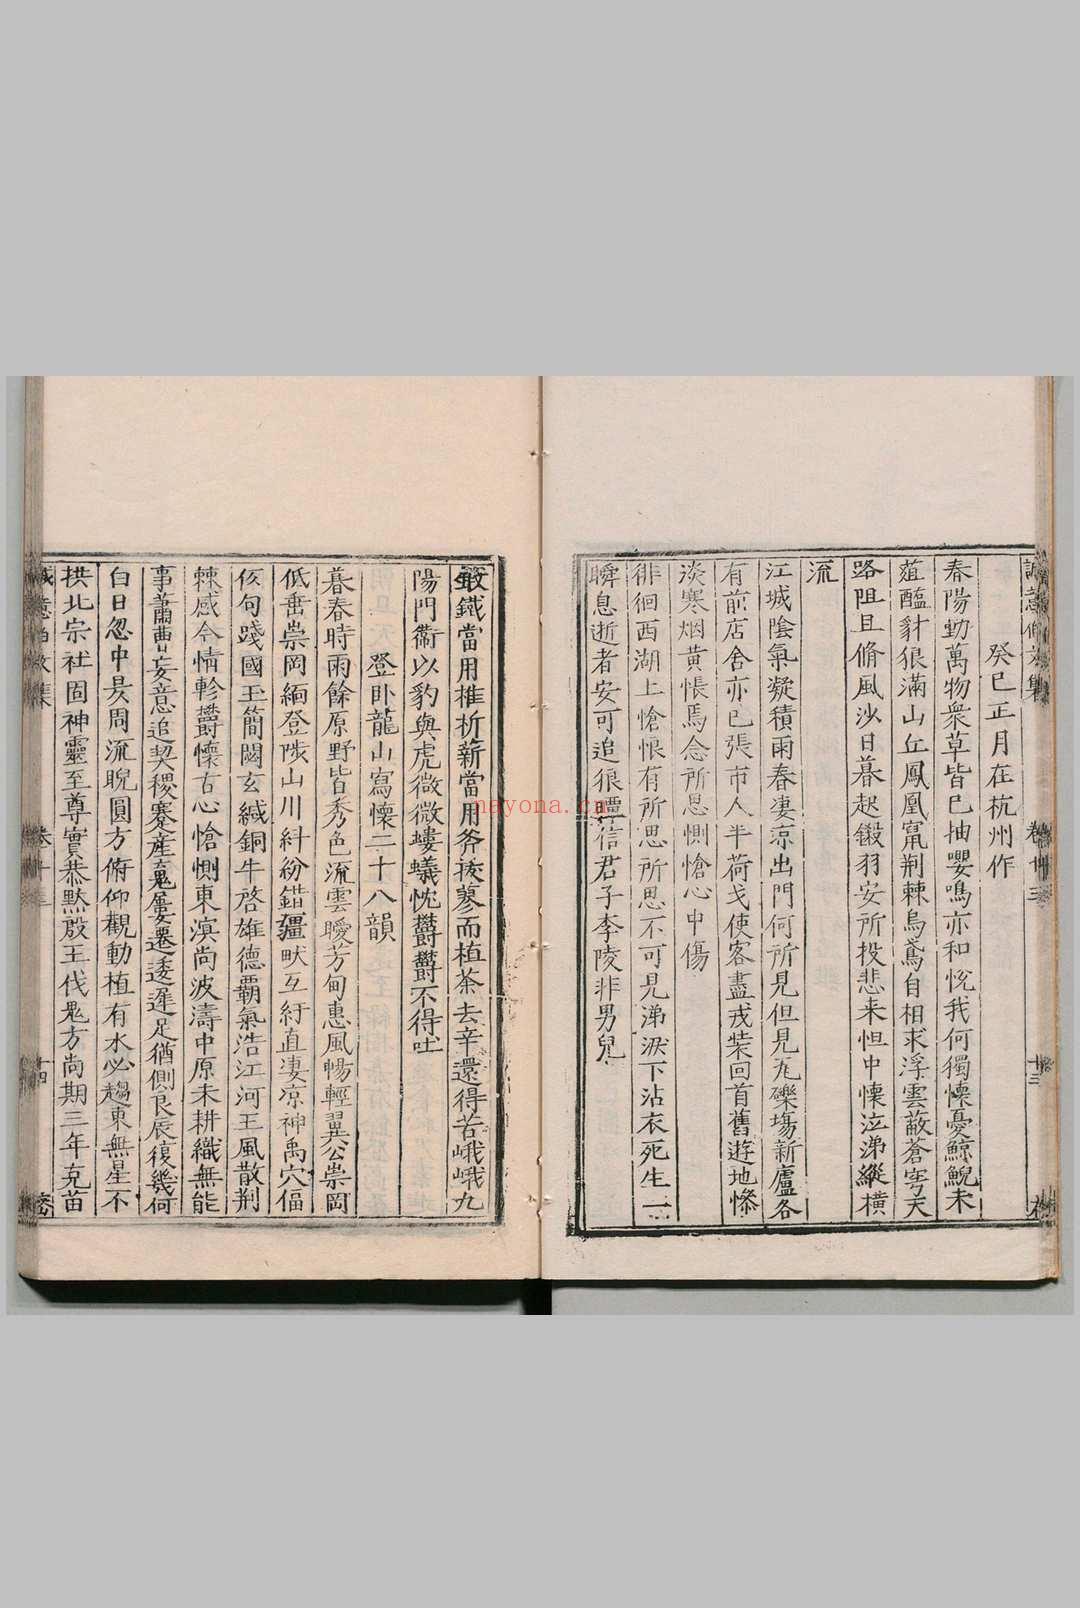 誠意伯文集 卷十三 十三
癸巳正月在杭州作
春陽動萬物衆草皆已抽嚶鳴亦和悅我何獨懷憂鯨鯢未
葅醢豺狼滿山丘鳳凰竄荆棘烏鳶自相求浮雲蔽蒼穹天
路阻且脩風沙日暮起鎩羽安所投悲来怛中懷泣涕縱横
流
江城隂氣凝積雨春凄凉出門何所見但見瓦礫塲新廬各
有前店舍亦已張市人半荷戈使客盡戎装回首舊遊地慘
淡寒烟黄悵焉念所思惻愴心中傷
徘徊西湖上愴悢有所思所思不可見涕淚下沾衣死生一
瞬息逝者安可追狼瞫信君子李陵非男兒
鍛鐵當用椎析薪當用斧拔蓼而植荼去辛還得苦峨峨九
陽門衞以豹與虎微微螻蟻忱欝欝不得吐
登卧龍山寫懷二十八韻
暮春時雨餘原野皆秀色流雲曖芳甸惠風暢輕翼公崇岡
低垂崇岡緬登陟山川紏紛錯疆畎互紆直凄凉神禹穴偪
仄句踐國玉簡閟玄緘銅牛啓雄德覇氣浩江河王風散荆
棘感今情軫欝懷古心愴惻東溟尚波濤中原未耕織無能
事蕭曹妄意追契稷蹇産嵬屢遷逶遲足猶側良辰復幾何
白日忽中昃周流睨圓方俯仰觀動植有水必趨東無星不
拱北宗社固神靈至尊實恭黙殷王伐鬼方尚期三年克苗
誠意伯文集 卷十三 十四
nayona.cn